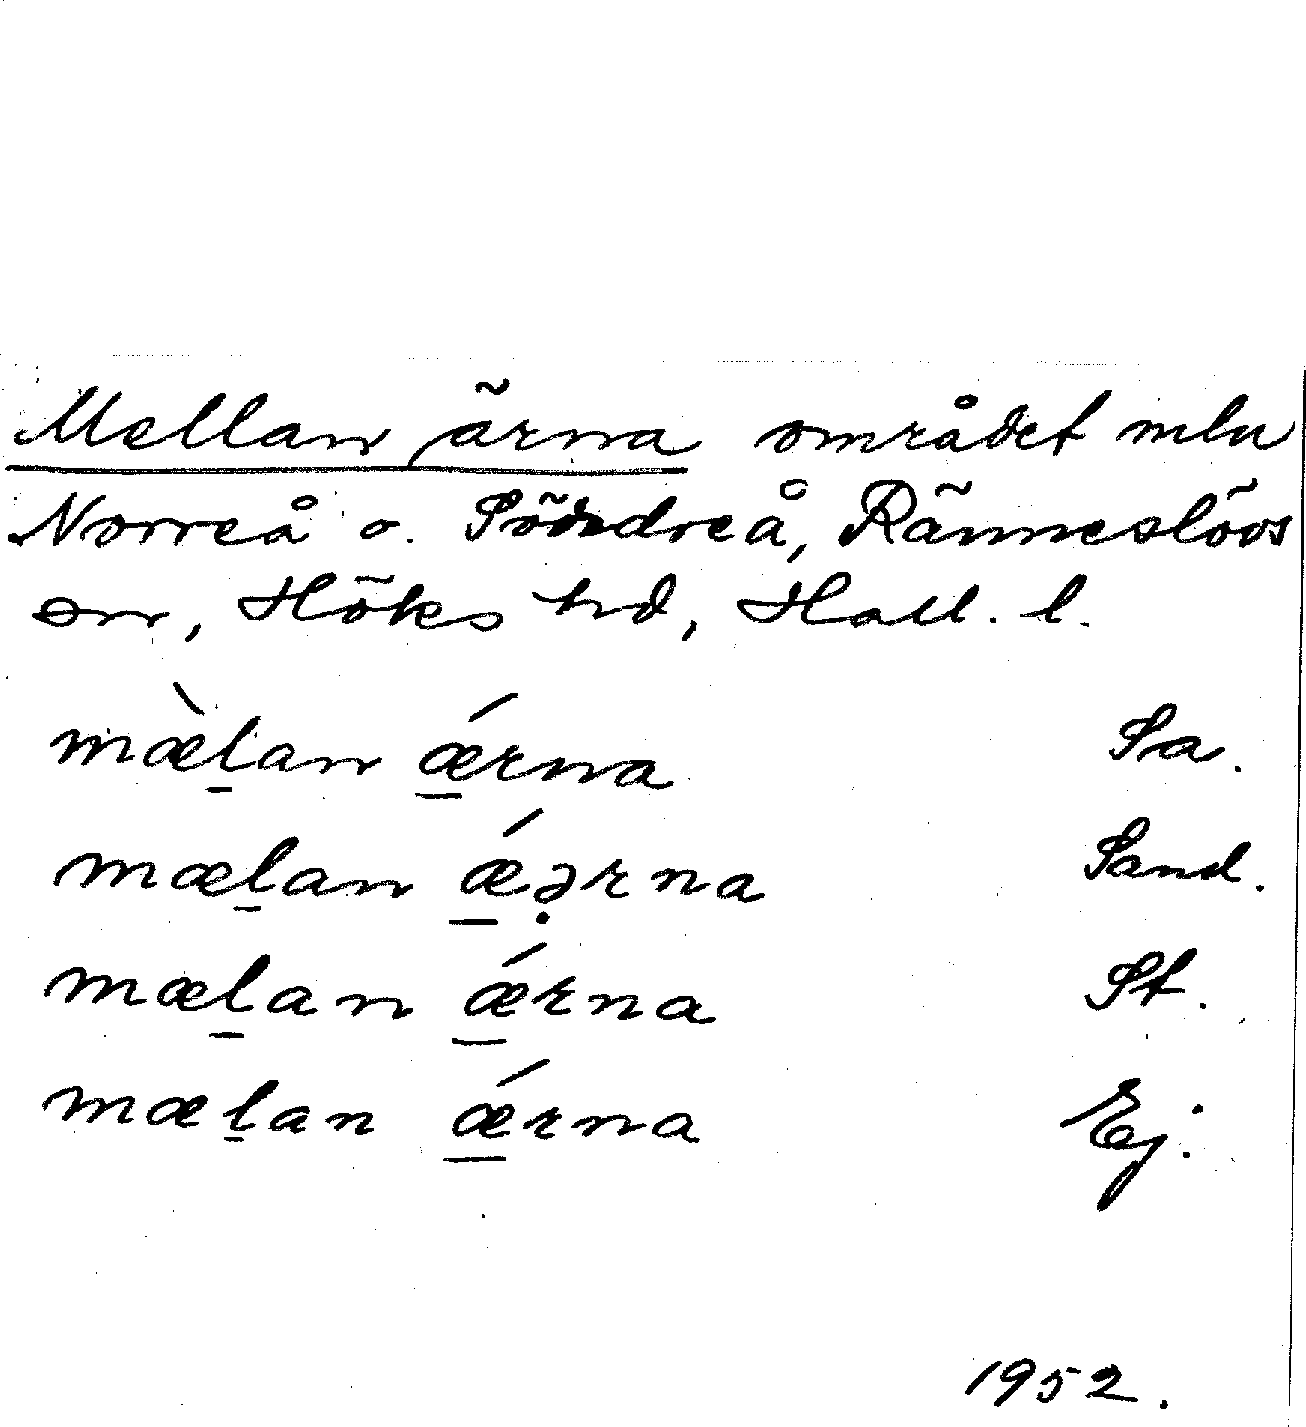 Mellan ärna området mln
Norreå o. Söndreå, Ränneslövs
sn, Höks hd, Hall. l.
mæ̀l̠an ǽ̠rna Sa.
mæl̠an ǽ̠ə̣rna Sand.
mæl̠an ǽ̠rna St.
mæl̠an ǽ̠rna Ej.
1952.